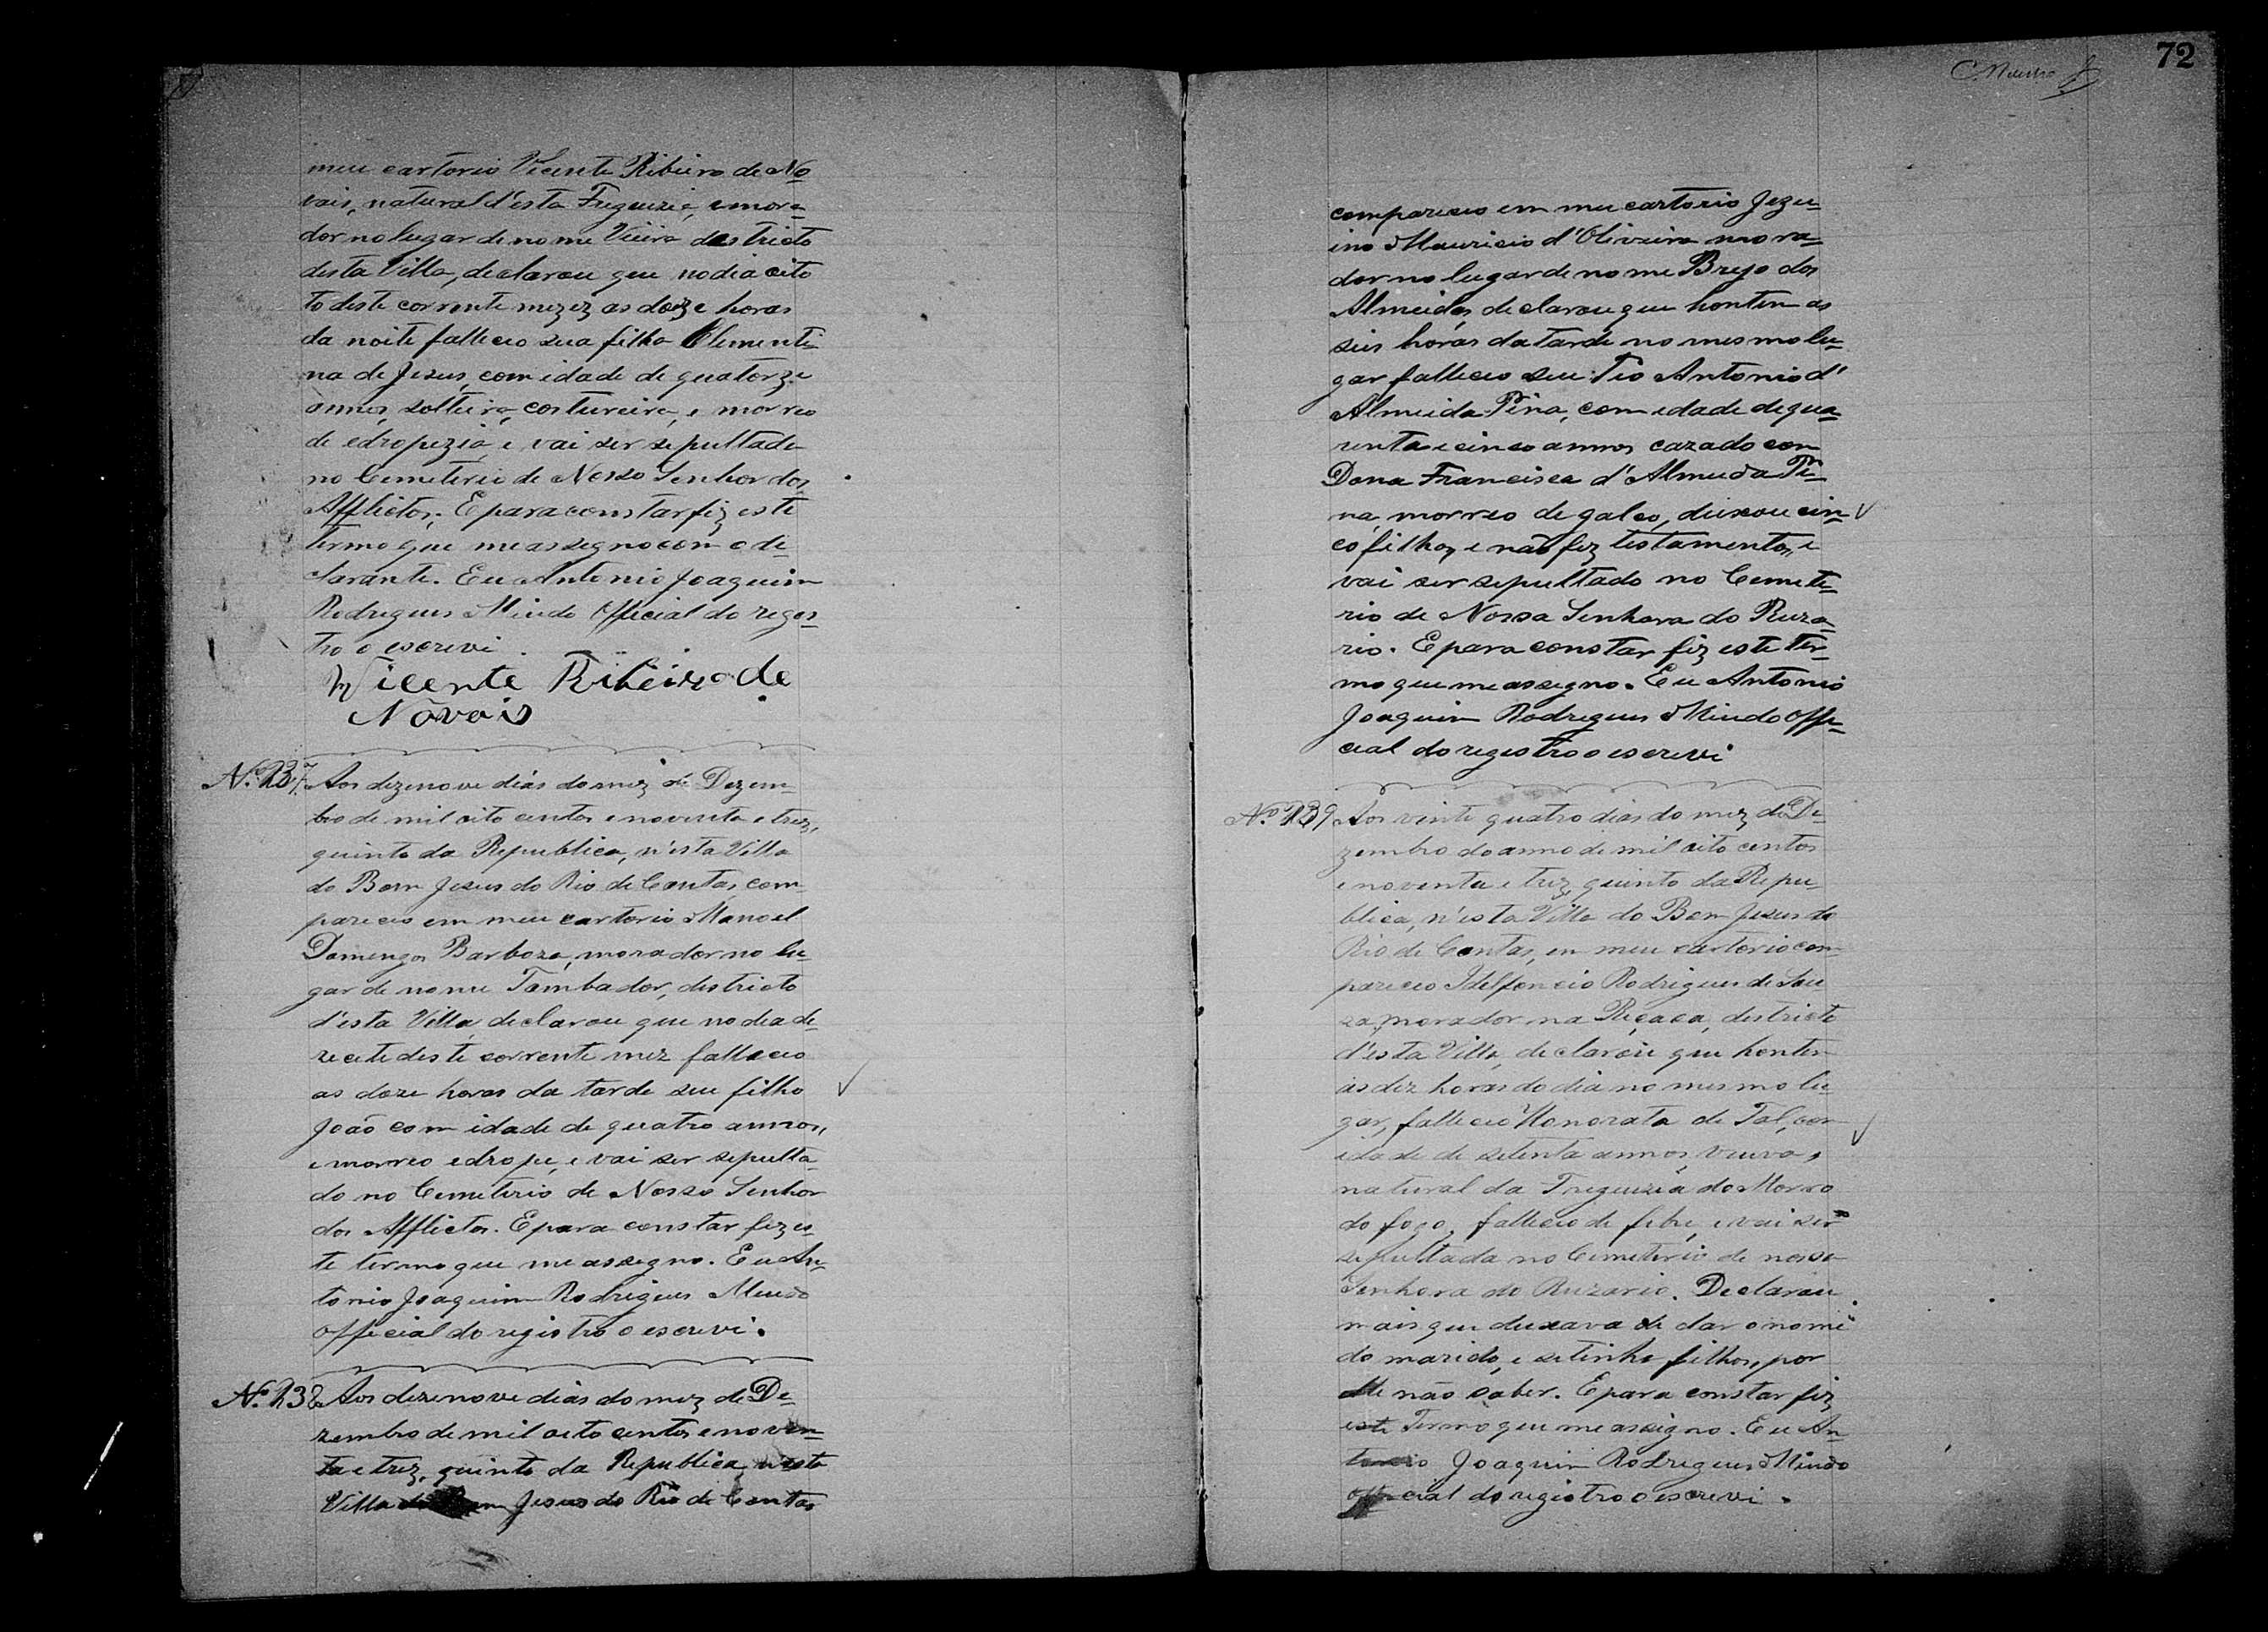 meu cartorio Vicente Ribeiro de No=
vais, natural d'esta Freguezia, e mora=
dor no lugar de nome Vieira destricto
desta Villa, declarou que no dia oito
to deste corrente mez ez as doze horas
da noite falleceo sua filha Clementi=
na de Jesus, com idade de quatorze
annos, solteira, costureira, e morreo
de edropezia, e vai ser sepultada
no Cemeterio de Nosso Senhor dos
Afflictos. E para constar fiz este
termo que me assegno com o de=
clarante. Eu Antonio Joaquim
Rodrigues Mindo Official do reges=
tro o escrevi.
Vicente Ribeiro de
Novais
N.º 237. Aos dezenove dias do mez de Dezem=
bro de mil oito centos e noventa e trez,
quinto da Republica, n'esta Villa
do Bom Jesus do Rio de Contas, com=
pareceo em meu cartorio Manoel
Domingos Barboza, morador no lu=
gar de nome Tombador, destricto
d'esta Villa, declarou que no dia de=
zecete deste corrente mez falleceo
as doze horas da tarde seu filho
João com idade de quatro annos,
e morreo edrope, e vai ser sepulta=
do no Cemeterio de Nosso Senhor
dos Afflictos. E para constar fiz es=
te termo que me assegno. Eu An=
tonio Joaquim Rodrigues Mindo
official do registro o escrevi.
N.º 238 Aos dezenove dias do mez de De=
zembro de mil oito centos e noven=
ta e trez, quinto da Republica, n'esta
Villa do Bom Jesus do Rio de Contas
72
compareceo em meu cartorio Jezu=
ino Mauricio d'Oliveira mora=
dor no lugar de nome Brejo dos
Almeidas, declarou que hontem as
seis horas da tarde no mesmo lu=
gar falleceo seu Tio Antonio d'
Almeida Pina, com idade de qua=
renta e cinco annos cazado com
Dona Francisca d'Almeida Pi=
na, morreo de galco, deixou cin=
co filhos, e não fez testamento, e
vai ser sepultado no Cemete=
rio de Nossa Senhora do Ruza=
rio. E para constar fiz este ter=
mo que me assegno. Eu Antonio
Joaquim Rodrigues Mindo offi=
cial do registro o escrevi
N.º 239 Aos vinte quatro dias do mez de De=
zembro do anno de mil oito centos
e noventa e trez, quinto da Repu=
blica, n'esta Villa do Bom Jesus do
Rio de Contas, em meu cartorio com=
pareceo Idelfoncio Rodrigues de Sou
za, morador na Reçaca, destricto
d'esta Villa, declarou que hontem
as dez horas do dia no mesmo lu=
gar, falleceo Honorata de Tal, com
idade de setenta annos, viuva,
natural da Freguezia do Morro
do fogo, falleceo de febre, e vai ser
sepultada no Cemeterio de nossa
Senhora do Ruzario. Declarou
mais que deixava de dar o nome
do marido, e se tinha filhos, por
elle não saber. E para constar fiz
este Termo que me assigno. Eu An=
tonio Joaquim Rodrigues Mindo
official do registro o escrevi.